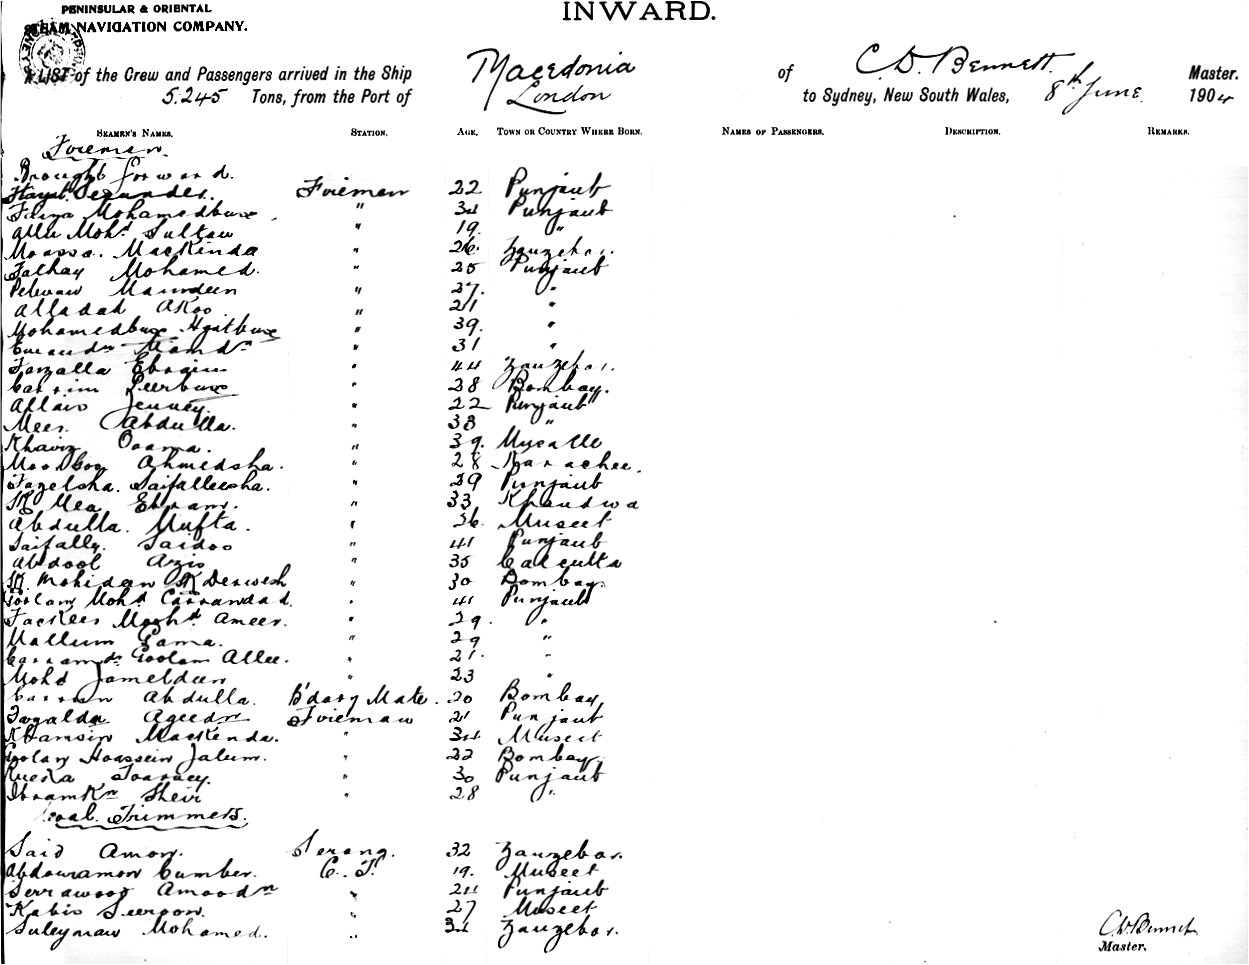 PENINSULAR & ORIENTAL
STEAM NAVIGATION COMPANY.
INWARD.
A LIST of the Crew and Passengers arrived in the Ship Macedonia of C. D. Bennett. Master.
5.245 Tons, from the Port of London to Sydney, New South Wales, 8th June 1904
SEAMEN'S NAMES. STATION. AGE. TOWN OR COUNTRY WHERE BORN. NAMES OF PASSENGERS. DESCRIPTION. REMARKS.
Firemen.
Brought forward.
Fireman 22 Punjaub
Mohamedbux " 34 Punjaub
Mohd Sultan " 19. "
Moossa. MacKinda " 26. Zanzebar.
Fathay Mohamed. " 25 Punjaub
" 27. "
Alladad Akoo " 24 "
Mohamedbux Hyatbux " 39. "
" 31 "
Fazalla Ebraim " 44 Zanzebar.
Carrim Peerbux " 28 Bombay.
" 22 Punjaub
Meer Abdulla. " 38 "
Osama. " 39.
Ahmedsha. " 28 Karachee.
Fazelsha. Saifalleesha. " 29 Punjaub
SK Mea Ebram. " 33 Khandwa
Abdulla. Mufta. " 36. Muscet
Saifally. Saidoo " 41 Punjaub
Abdool Azis " 35 Calcutta
SK. Mohidan SK Derwesh " 30 Bombay.
Goolam Mohd Carramdad. " 41 Punjaub
Fackeer Moohd Ameer. " 29. "
Mallum Gama. " 29 "
Carramdn Goolam Allee. " 21. "
Mohd Jameldeen " 23 "
Carrim Abdulla. B'dary Mate. 20 Bombay
Fazalda Ageedn Fireman 21 Punjaub
Khamsin MacKenda. " 34 Muscet
Goolam Hoassein Jalum. " 22 Bombay.
" 30 Punjaub
IbramKn Sheir " 28 "
Coal Trimmers.
Said Amon. Serang. 32 Zanzebar.
Abdouramon Cumber. C. T. 19. Muscet
Amoodn " 24 Punjaub
Kabir " 27 Muscet
Suleyman Mohamed. " 34 Zanzebar.
C. D. Bennett
Master.